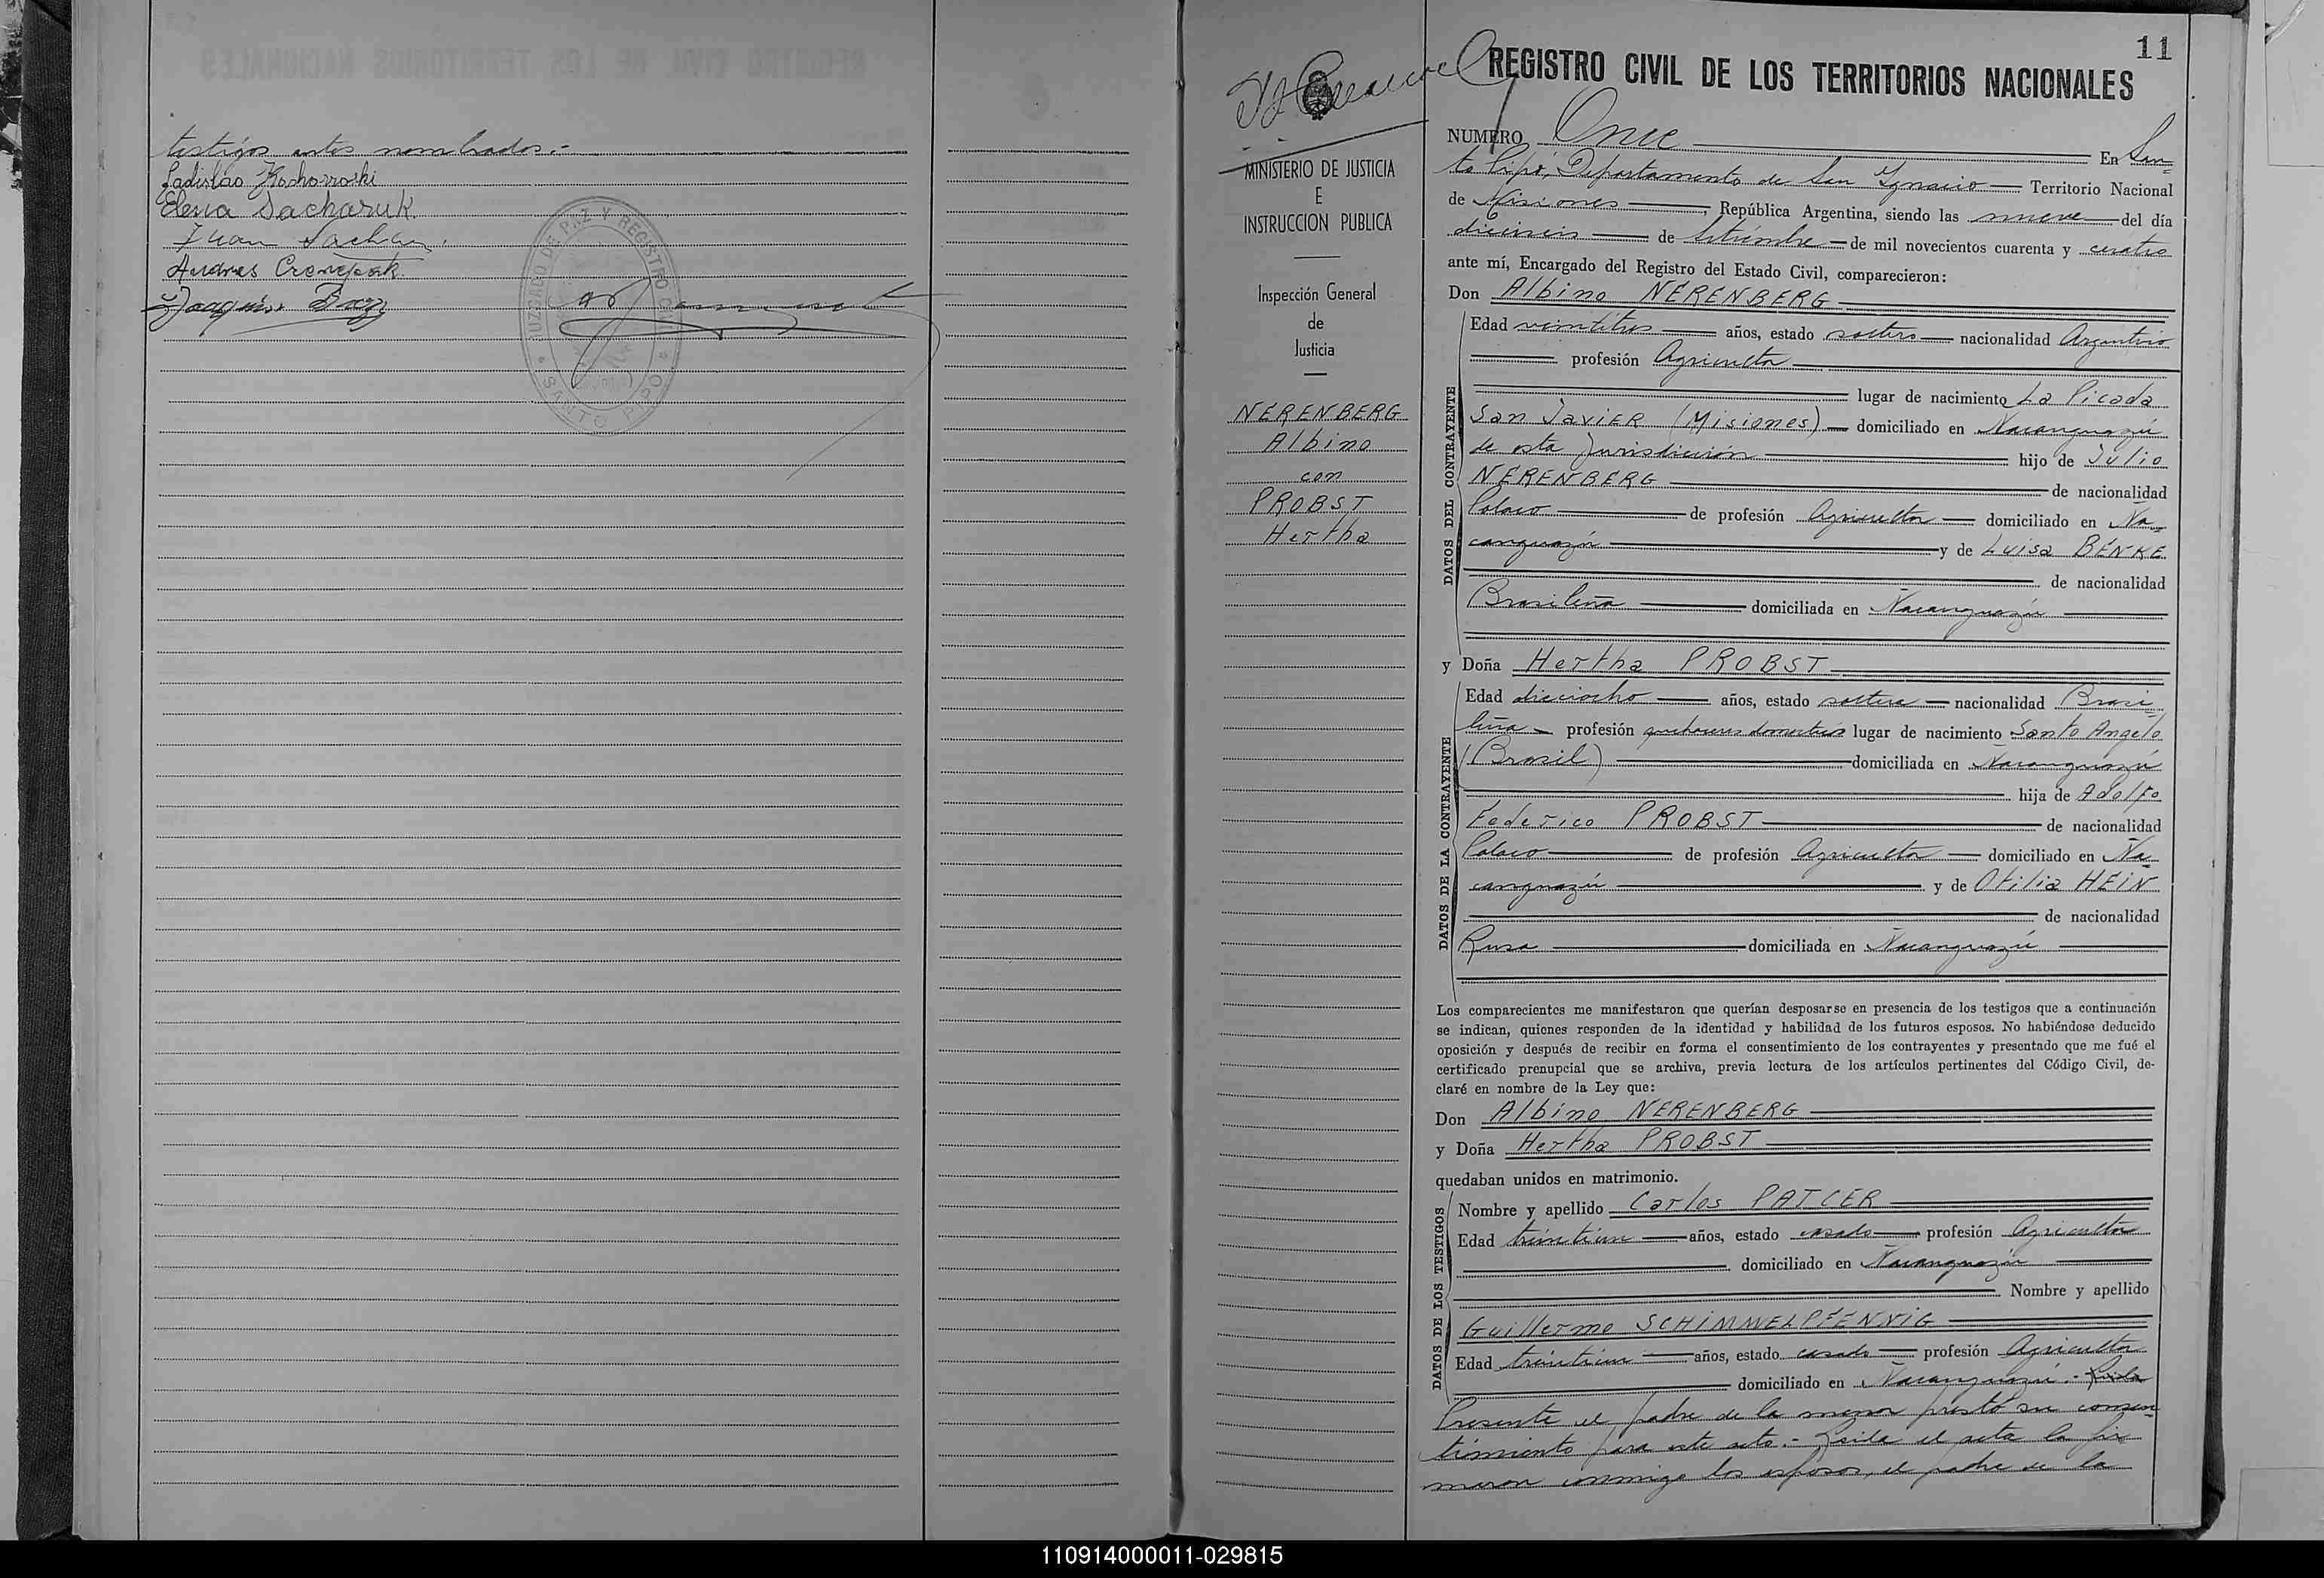 testigos antes nombrados.-
Ladislao Kochorroski
Elena Sacharuk.
Juan Sachar
Andres Crenepak
Joaquin Baez
JUZGADO DE PAZ Y REGISTRO CIVIL
SANTO PIPO
11
REGISTRO CIVIL DE LOS TERRITORIOS NACIONALES
MINISTERIO DE JUSTICIA
E
INSTRUCCION PUBLICA
Inspección General
de
Justicia
NERENBERG
Albino
con
PROBST
Hertha
NUMERO Once En San-
to Pipó, Departamento de San Ignacio Territorio Nacional
de Misiones, República Argentina, siendo las nueve del día
dieciseis de Setiembre de mil novecientos cuarenta y cuatro
ante mí, Encargado del Registro del Estado Civil, comparecieron:
Don Albino NERENBERG
DATOS DEL CONTRAYENTE
Edad veintitres años, estado soltero nacionalidad Argentino
profesión Agricultor
lugar de nacimiento La Picada
San Javier (Misiones) domiciliado en Ñacanguazú
de esta Jurisdicción hijo de Julio
NERENBERG de nacionalidad
Polaco de profesión Agricultor domiciliado en Ña-
canguazú y de Luisa BENKE
de nacionalidad
Brasileña domiciliada en Ñacanguazú
y Doña Hertha PROBST
DATOS DE LA CONTRAYENTE
Edad dieciocho años, estado soltera nacionalidad Brasi-
leña profesión quehaceres domesticos lugar de nacimiento Santo Angelo
(Brasil) domiciliada en Ñacanguazú
hija de Adolfo
Federico PROBST de nacionalidad
Polaco de profesión Agricultor domiciliado en Ña-
canguazú y de Otilia HEIN
de nacionalidad
Rusa domiciliada en Ñacanguazú
Los comparecientes me manifestaron que querían desposarse en presencia de los testigos que a continuación
se indican, quienes responden de la identidad y habilidad de los futuros esposos. No habiéndose deducido
oposición y después de recibir en forma el consentimiento de los contrayentes y presentado que me fué el
certificado prenupcial que se archiva, previa lectura de los artículos pertinentes del Código Civil, de-
claré en nombre de la Ley que:
Don Albino NERENBERG
y Doña Hertha PROBST
quedaban unidos en matrimonio.
DATOS DE LOS TESTIGOS
Nombre y apellido Carlos PATCER
Edad treintiun años, estado casado profesión Agricultor
domiciliado en Ñacanguazú
Nombre y apellido
Guillermo SCHIMMELPFENNIG
Edad treintiun años, estado casado profesión Agricultor
domiciliado en Ñacanguazú.- Leida
Presente el padre de la menor prestó su consen-
timiento para este acto.- Leida el acta la fir-
maron conmigo los esposos, el padre de la
110914000011-029815